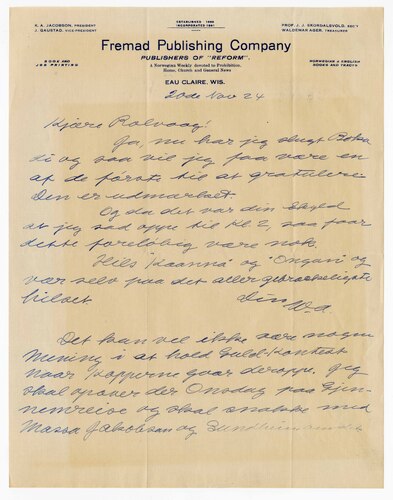 K. A. JACOBSON, PRESIDENT
J. GAUSTAD, VICE-PRESIDENT
ESTABLISHED 1886
INCORPORATED 1891
PROF. J. J. SKORDALSVOLD, SEC'Y
WALDEMAR AGER, TREASURER
Fremad Publishing Company
PUBLISHERS OF "REFORM".
BOOK AND
JOB PRINTING
A Norwegian Weekly devoted to Prohibition,
Home, Church and General News
NORWEGIAN & ENGLISH
BOOKS AND TRACTS
EAU CLAIRE, WIS.
20de Nov 24
Kjære Rolvaag!
Ja, nu har jeg slugt Boka
di og saa vil jeg faa være en
af de første til at gratulere.
Den er udmærket.
Og da det var din Skyld
at jeg sad oppe til Kl 2, saa faar
dette foreløbig være nok.
Hils Kaanna og Ongan og
vær selv paa det aller
hilset
Din
W.A.
Det kan vel ikke være nogen
Mening i at hold Guld-Kontest
naar Kopperne gaar deroppe. Jeg
skal opover der Onsdag paa Gjen-
nemreise og skal snakke med
Massa Jakobsen og Sundheim